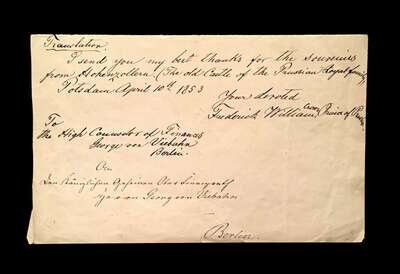 Translation
I send you my best thanks for the souvenirs
from Hohenzollern. (The old Castle of the Prussian Royal family
Potsdam April 10th 1853
Your devoted
Frederick William, Prince of
To
the High Counselor of Finances
George von Viebahn
Berlin.
An
den Königlichen Geheimen Ober
Herrn Georg von Viebahn
Berlin.